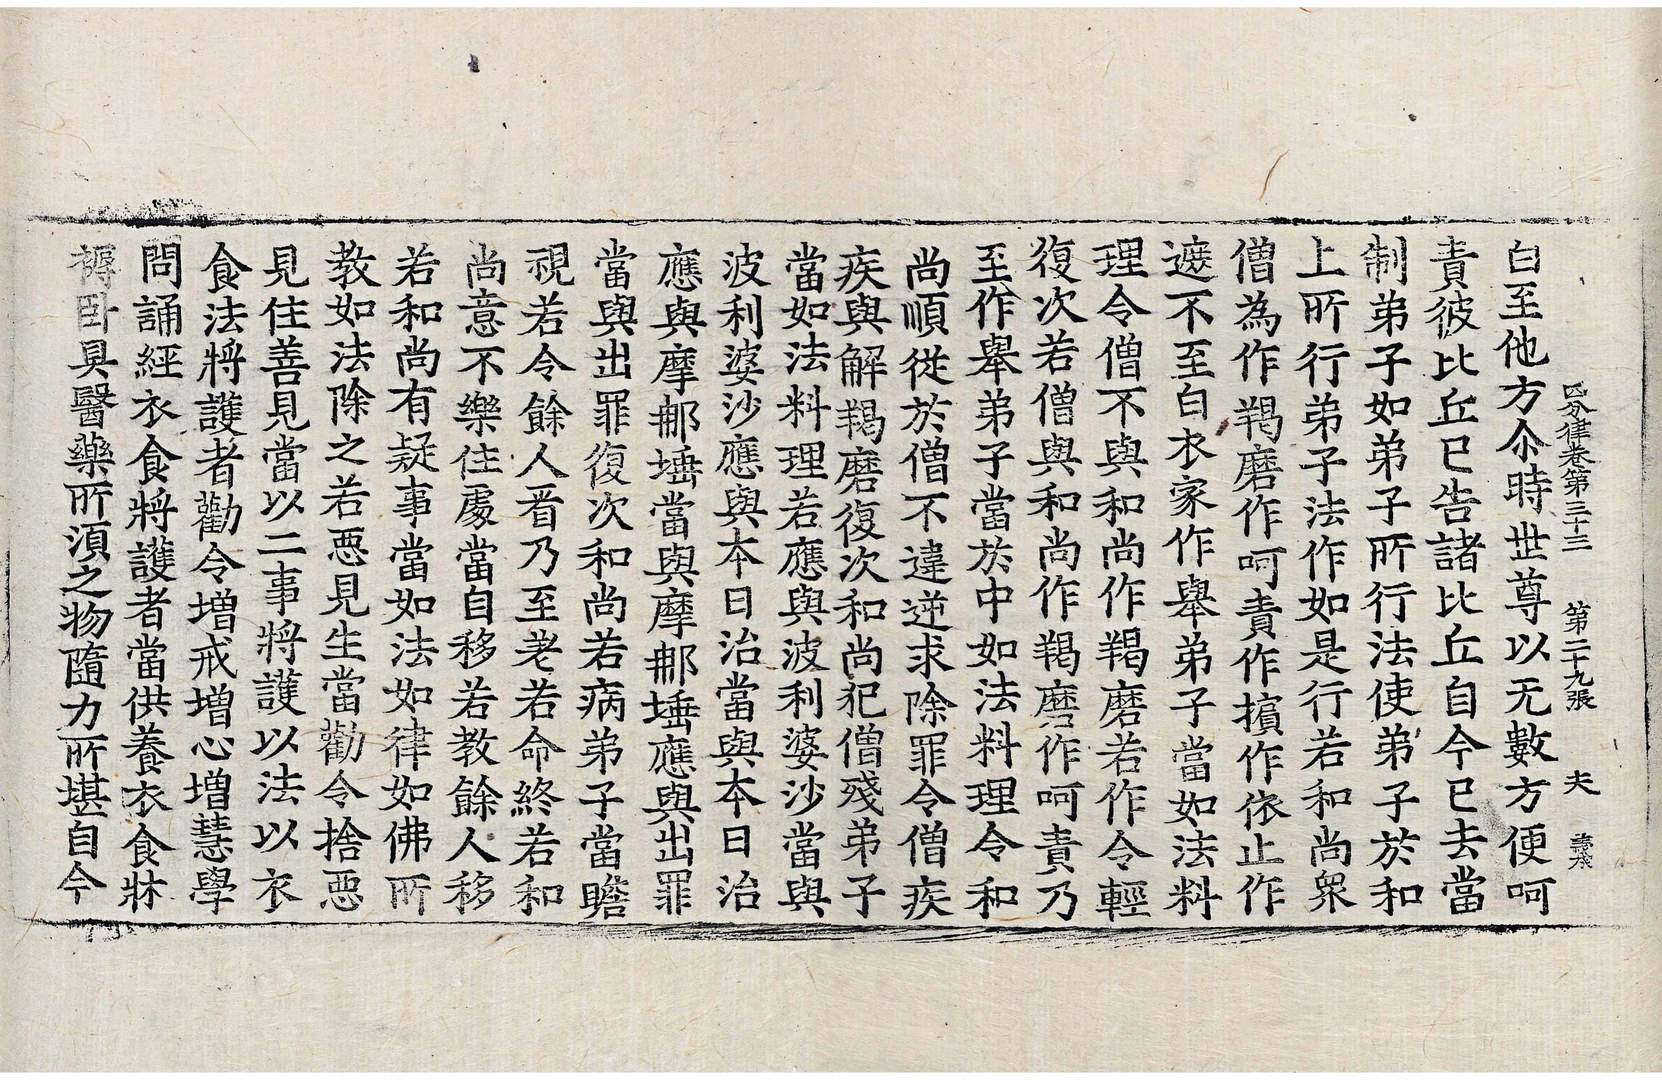 四分律卷第三十三 第二十九張 夫
白至他方尒時世尊以无數方便呵
責彼比丘已告諸比丘自今已去當
制弟子如弟子所行法使弟子於和
上所行弟子法作如是行若和尚衆
僧為作羯磨作呵責作擯作依止作
遮不至白衣家作舉弟子當如法料
理令僧不與和尚作羯磨若作令輕
復次若僧與和尚作羯磨作呵責乃
至作舉弟子當於中如法料理令和
尚順從於僧不違逆求除罪令僧疾
疾與解羯磨復次和尚犯僧殘弟子
當如法料理若應與波利婆沙當與
波利婆沙應與本日治當與本日治
應與摩那埵當與摩那埵應與出罪
當與出罪復次和尚若病弟子當瞻
視若令餘人看乃至老若命終若和
尚意不樂住處當自移若教餘人移
若和尚有疑事當如法如律如佛所
教如法除之若惡見生當勸令捨惡
見住善見當以二事將護以法以衣
食法將護者勸令增戒增心增慧學
問誦經衣食將護者當供養衣食牀
褥卧具醫藥所須之物隨力所堪自今